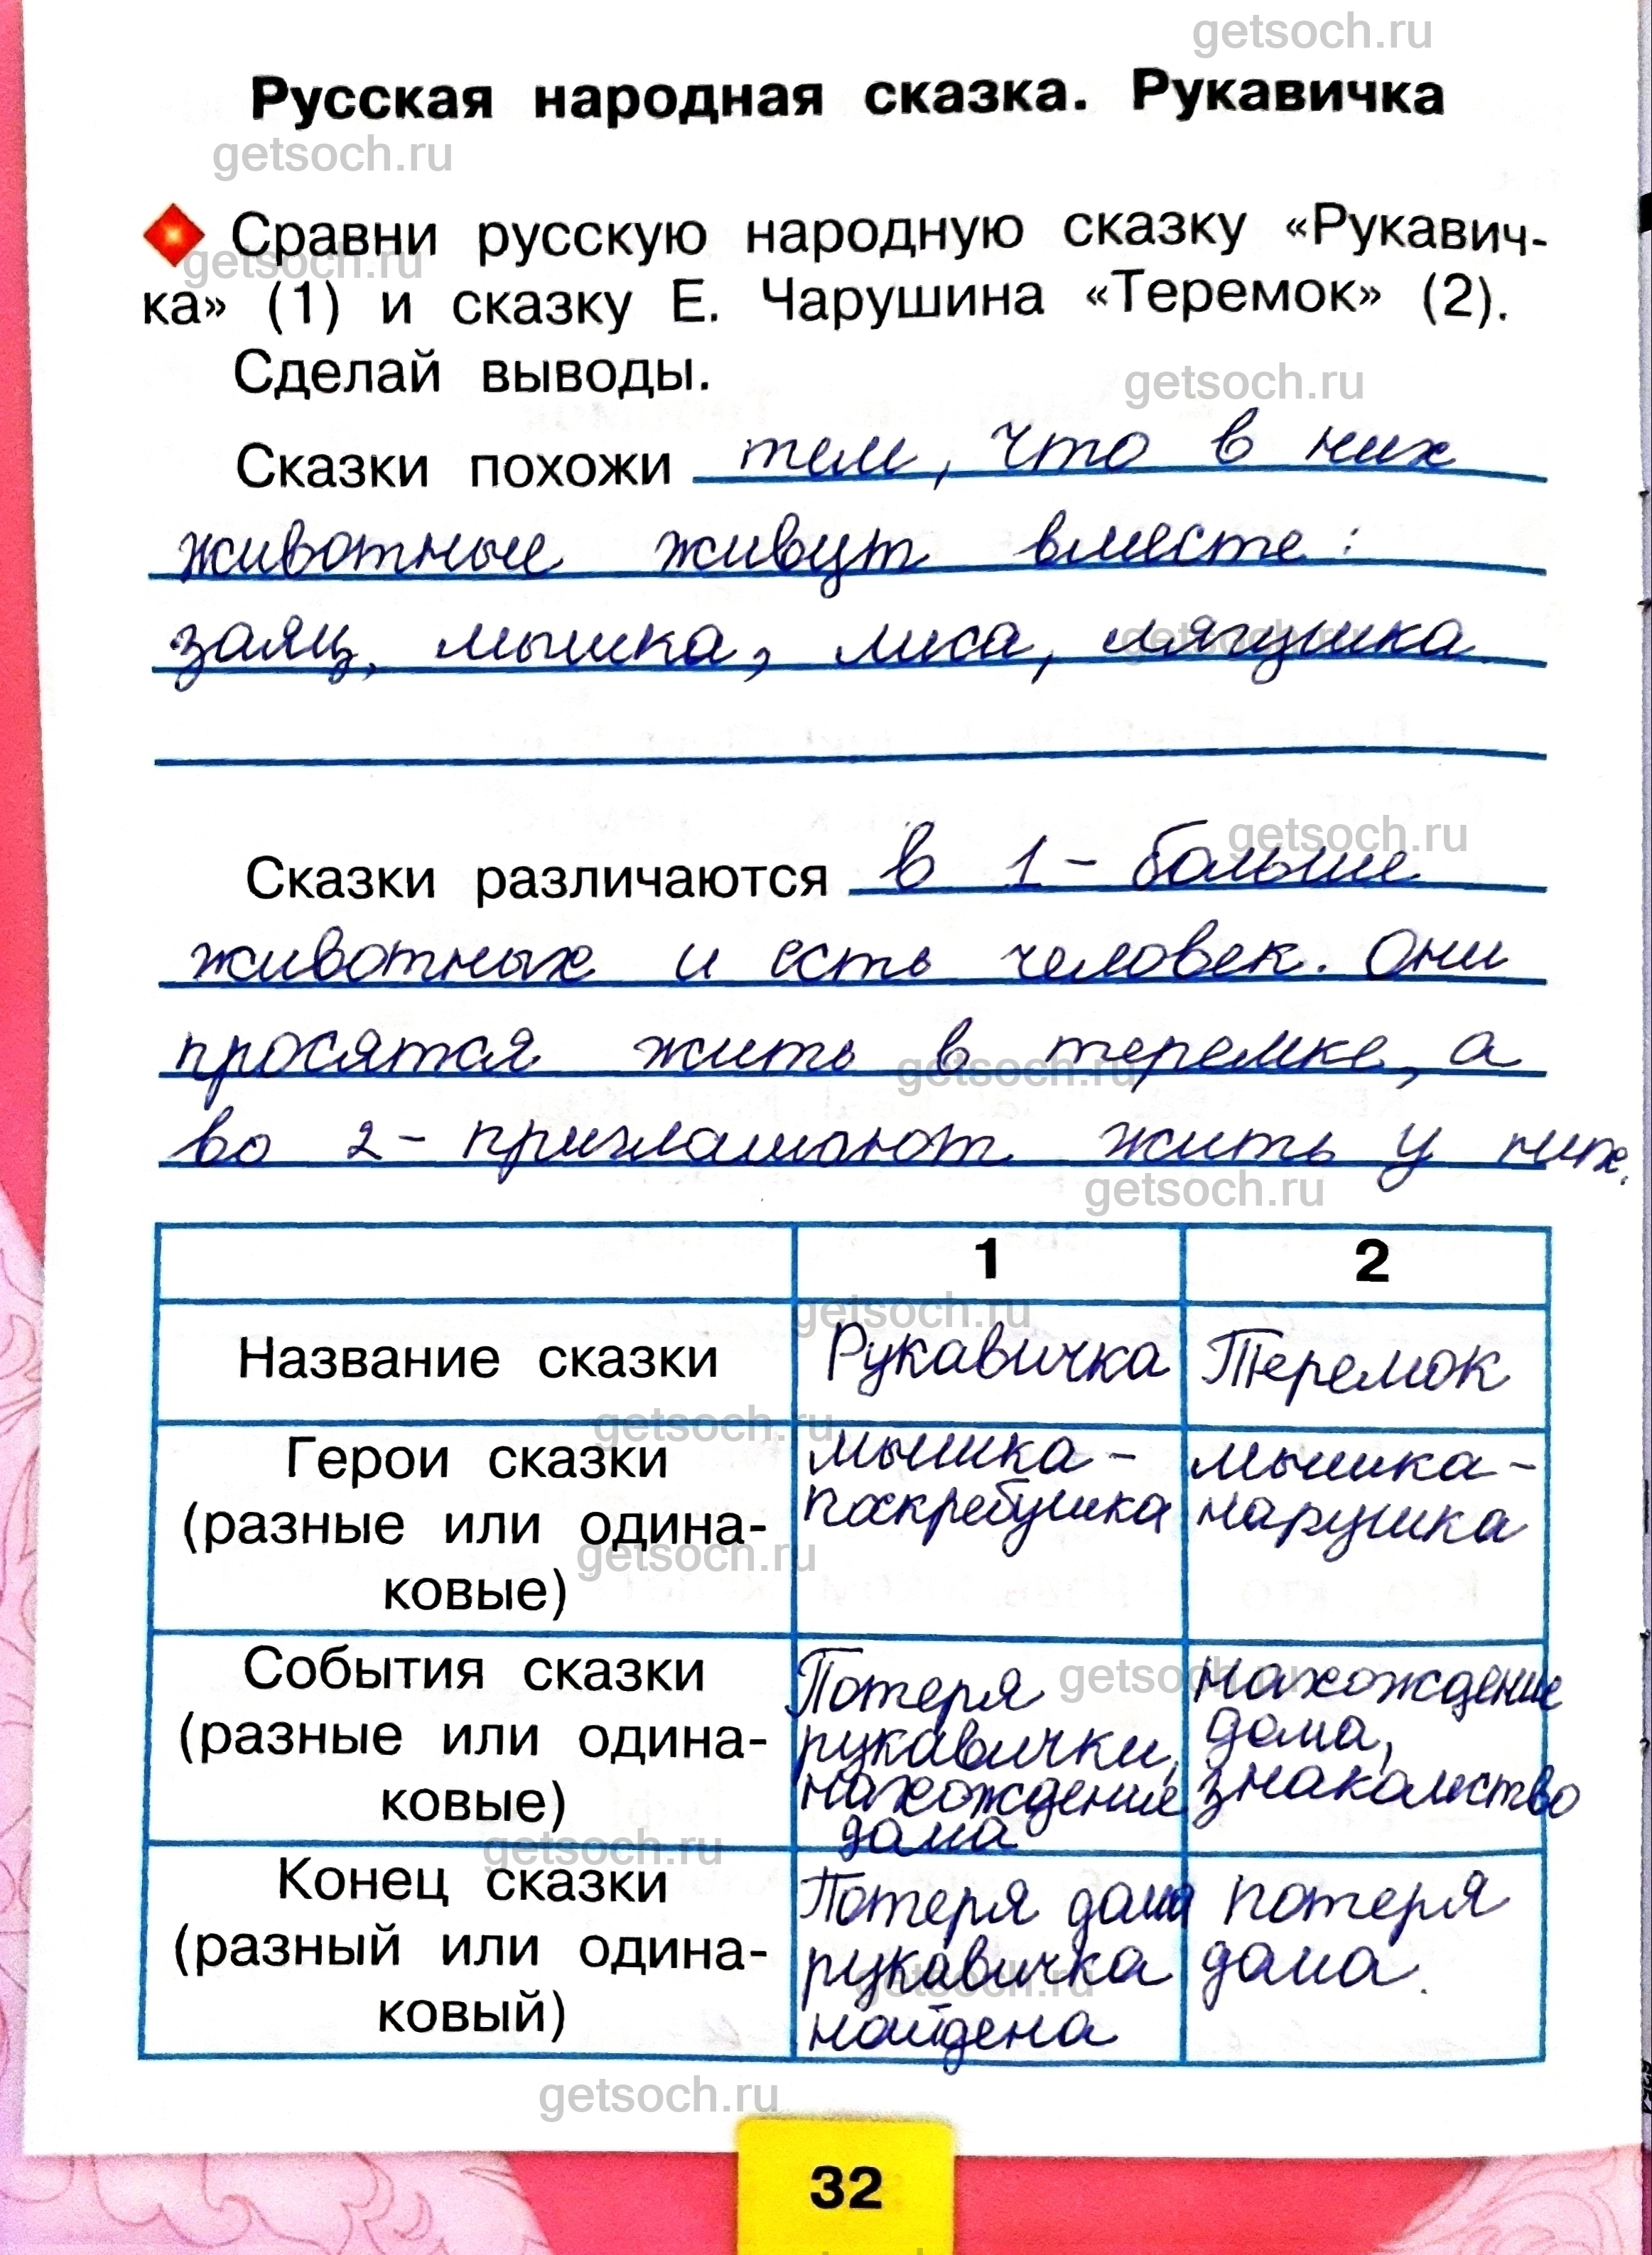 getsoch.ru
Русская народная сказка. Рукавичка
getsoch.ru
Сравни русскую народную сказку «Рукавич-
getsoch.ru
ка» (1) и сказку Е. Чарушина «Теремок» (2).
Сделай выводы.
getsoch.ru
Сказки похожи тем, что в них
животные живут вместе:
заяц, мышка, лиса, лягушка.
getsoch.ru
getsoch.ru
Сказки различаются в 1 - больше
животных и есть человек. Они
просятся жить в теремке, а
getsoch.ru
во 2 - приглашают жить у них.
getsoch.ru
1 2
getsoch.ru
Название сказки Рукавичка Теремок
getsoch.ru
Герои сказки
(разные или одина-
ковые)
мышка-
поскребушка
мышка-
норушка
getsoch.ru
События сказки
(разные или одина-
ковые)
Потеря
рукавички,
нахождение
дома
нахождение
дома,
знакомство
getsoch.ru
getsoch.ru
Конец сказки
(разный или одина-
ковый)
Потеря дома
рукавичка
найдена
потеря
дома.
getsoch.ru
getsoch.ru
32
getsoch.ru